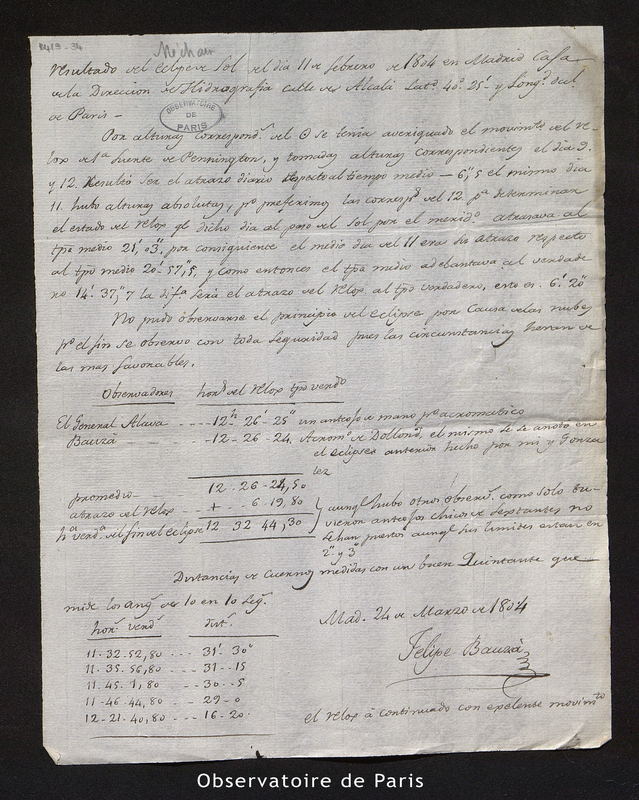 B419-34
Méchain
resultado del eclipse de Sol del dia 11 de febrero de 1804 en Madrid Casa
de la Direccion de Hidrografía calle de Alcalá Latd 40°. 25'. y Longd.
de Paris -
OBSERVATOIRE
DE
PARIS
Por alturas correspondts del ☉ se tenia averiguado el movimto del re-
lox de la suerte de Pennington, y tomadas alturas correspondientes el dia 9.
y 12. Resultó ser el atrazo diario respecto al tiempo medio — 6",5 el mismo dia
11. hubo alturas absolutas, po preferimos las corresps del 12 pa determinar
el estado del relox qe dicho dia al paso del Sol por el meridno atrasava al
tpo medio 21', 03". por consiguiente el medio dia del 11 era su atrazo respecto
al tpo medio 20-57",5 y como entonces el tpo medio adelantava al verdade
ro 14'. 37",7 la difa será el atrazo del relox al tpo verdadero, esto es. 6'. 20"
No pudo observarse el principio del eclipse por causa de las nubes
po el fin se observó con toda seguridad pues las circunstancias heran de
las mas favorables.
Observadores horas del relox tpo verdo
El General Alava - - - - 12h 26' 25" un anteojo de mano po acromatico
Bauzá - - - - 12 - 26 - 24. Acromo de Dollond, el mismo qe se anotó en
el eclipse anterior hecho por mi y Gonza
lez
promedio - - - 12 - 26 - 24,50
atrazo del relox - - - + - - 6 - 19,80
ha verda del fin del eclipse 12 32 44,30
aunqe hubo otros observs. como solo tu-
vieron anteojos chicos de sextantes no
se han puestos aunqe sus limites estan en
2" y 3"
Distancias de Cuernos medidas con un buen Quintante que
mide los angs de 10 en 10 seg.
hors verds dists.
11-32-52,80 - - - 31' 30"
11-35-56,80 - - - 31 - 15
11-45-1,80 - - - 30 - 5
11-46-44,80 - - - 29 - 0
12-21-40,80 - - - 16 - 20
Mad. 24 de Marzo de 1804
Felipe Bauzá
el relox á continuado con exelente movimto
Observatoire de Paris